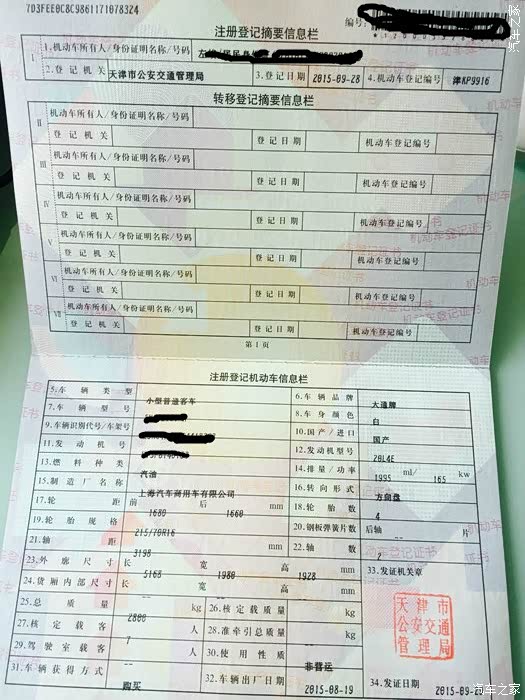 7D3FEE0C8C98611710783Z4
编号:
注册登记摘要信息栏
Ⅰ 1.机动车所有人/身份证明名称/号码
2.登记机关 天津市公安交通管理局 3.登记日期 2015-09-28 4.机动车登记编号 津KP9916
转移登记摘要信息栏
Ⅱ 机动车所有人/身份证明名称/号码
登记机关 登记日期 机动车登记编号
Ⅲ 机动车所有人/身份证明名称/号码
登记机关 登记日期 机动车登记编号
Ⅳ 机动车所有人/身份证明名称/号码
登记机关 登记日期 机动车登记编号
Ⅴ 机动车所有人/身份证明名称/号码
登记机关 登记日期 机动车登记编号
Ⅵ 机动车所有人/身份证明名称/号码
登记机关 登记日期 机动车登记编号
Ⅶ 机动车所有人/身份证明名称/号码
登记机关 登记日期 机动车登记编号
第1页
注册登记机动车信息栏
5.车辆类型 小型普通客车 6.车辆品牌 大通牌
7.车辆型号 8.车身颜色 白
9.车辆识别代号/车架号 10.国产/进口 国产
11.发动机号 12.发动机型号 20L4E
13.燃料种类 汽油 14.排量/功率 1995 ml/ 165 kw
15.制造厂名称 上海汽车商用车有限公司 16.转向形式 方向盘
17.轮距 前 1680 后 1660 mm 18.轮胎数 4
19.轮胎规格 215/70R16 20.钢板弹簧片数 后轴 -- 片
21.轴距 3198 mm 22.轴数 2
23.外廓尺寸 长 5168 宽 1980 高 1928 mm 33.发证机关章
24.货厢内部尺寸 长 -- 宽 -- 高 -- mm
25.总质量 2800 kg 26.核定载质量 -- kg
27.核定载客 7 人 28.准牵引总质量 -- kg
29.驾驶室载客 -- 人 30.使用性质 非营运
31.车辆获得方式 购买 32.车辆出厂日期 2015-08-19 34.发证日期 2015-09-28
天津市
公安交通
管理局
汽车之家